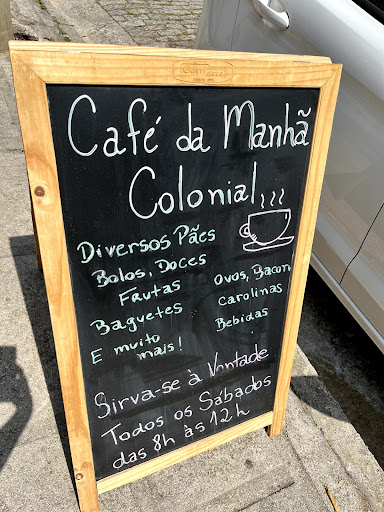 Café da Manhã
Colonial
Diversos Pães
Bolos, Doces
Frutas
Baguetes
E muito
mais!
Ovos, Bacon
Carolinas
Bebidas
Sirva-se à Vontade
Todos os Sábados
das 8h às 12h